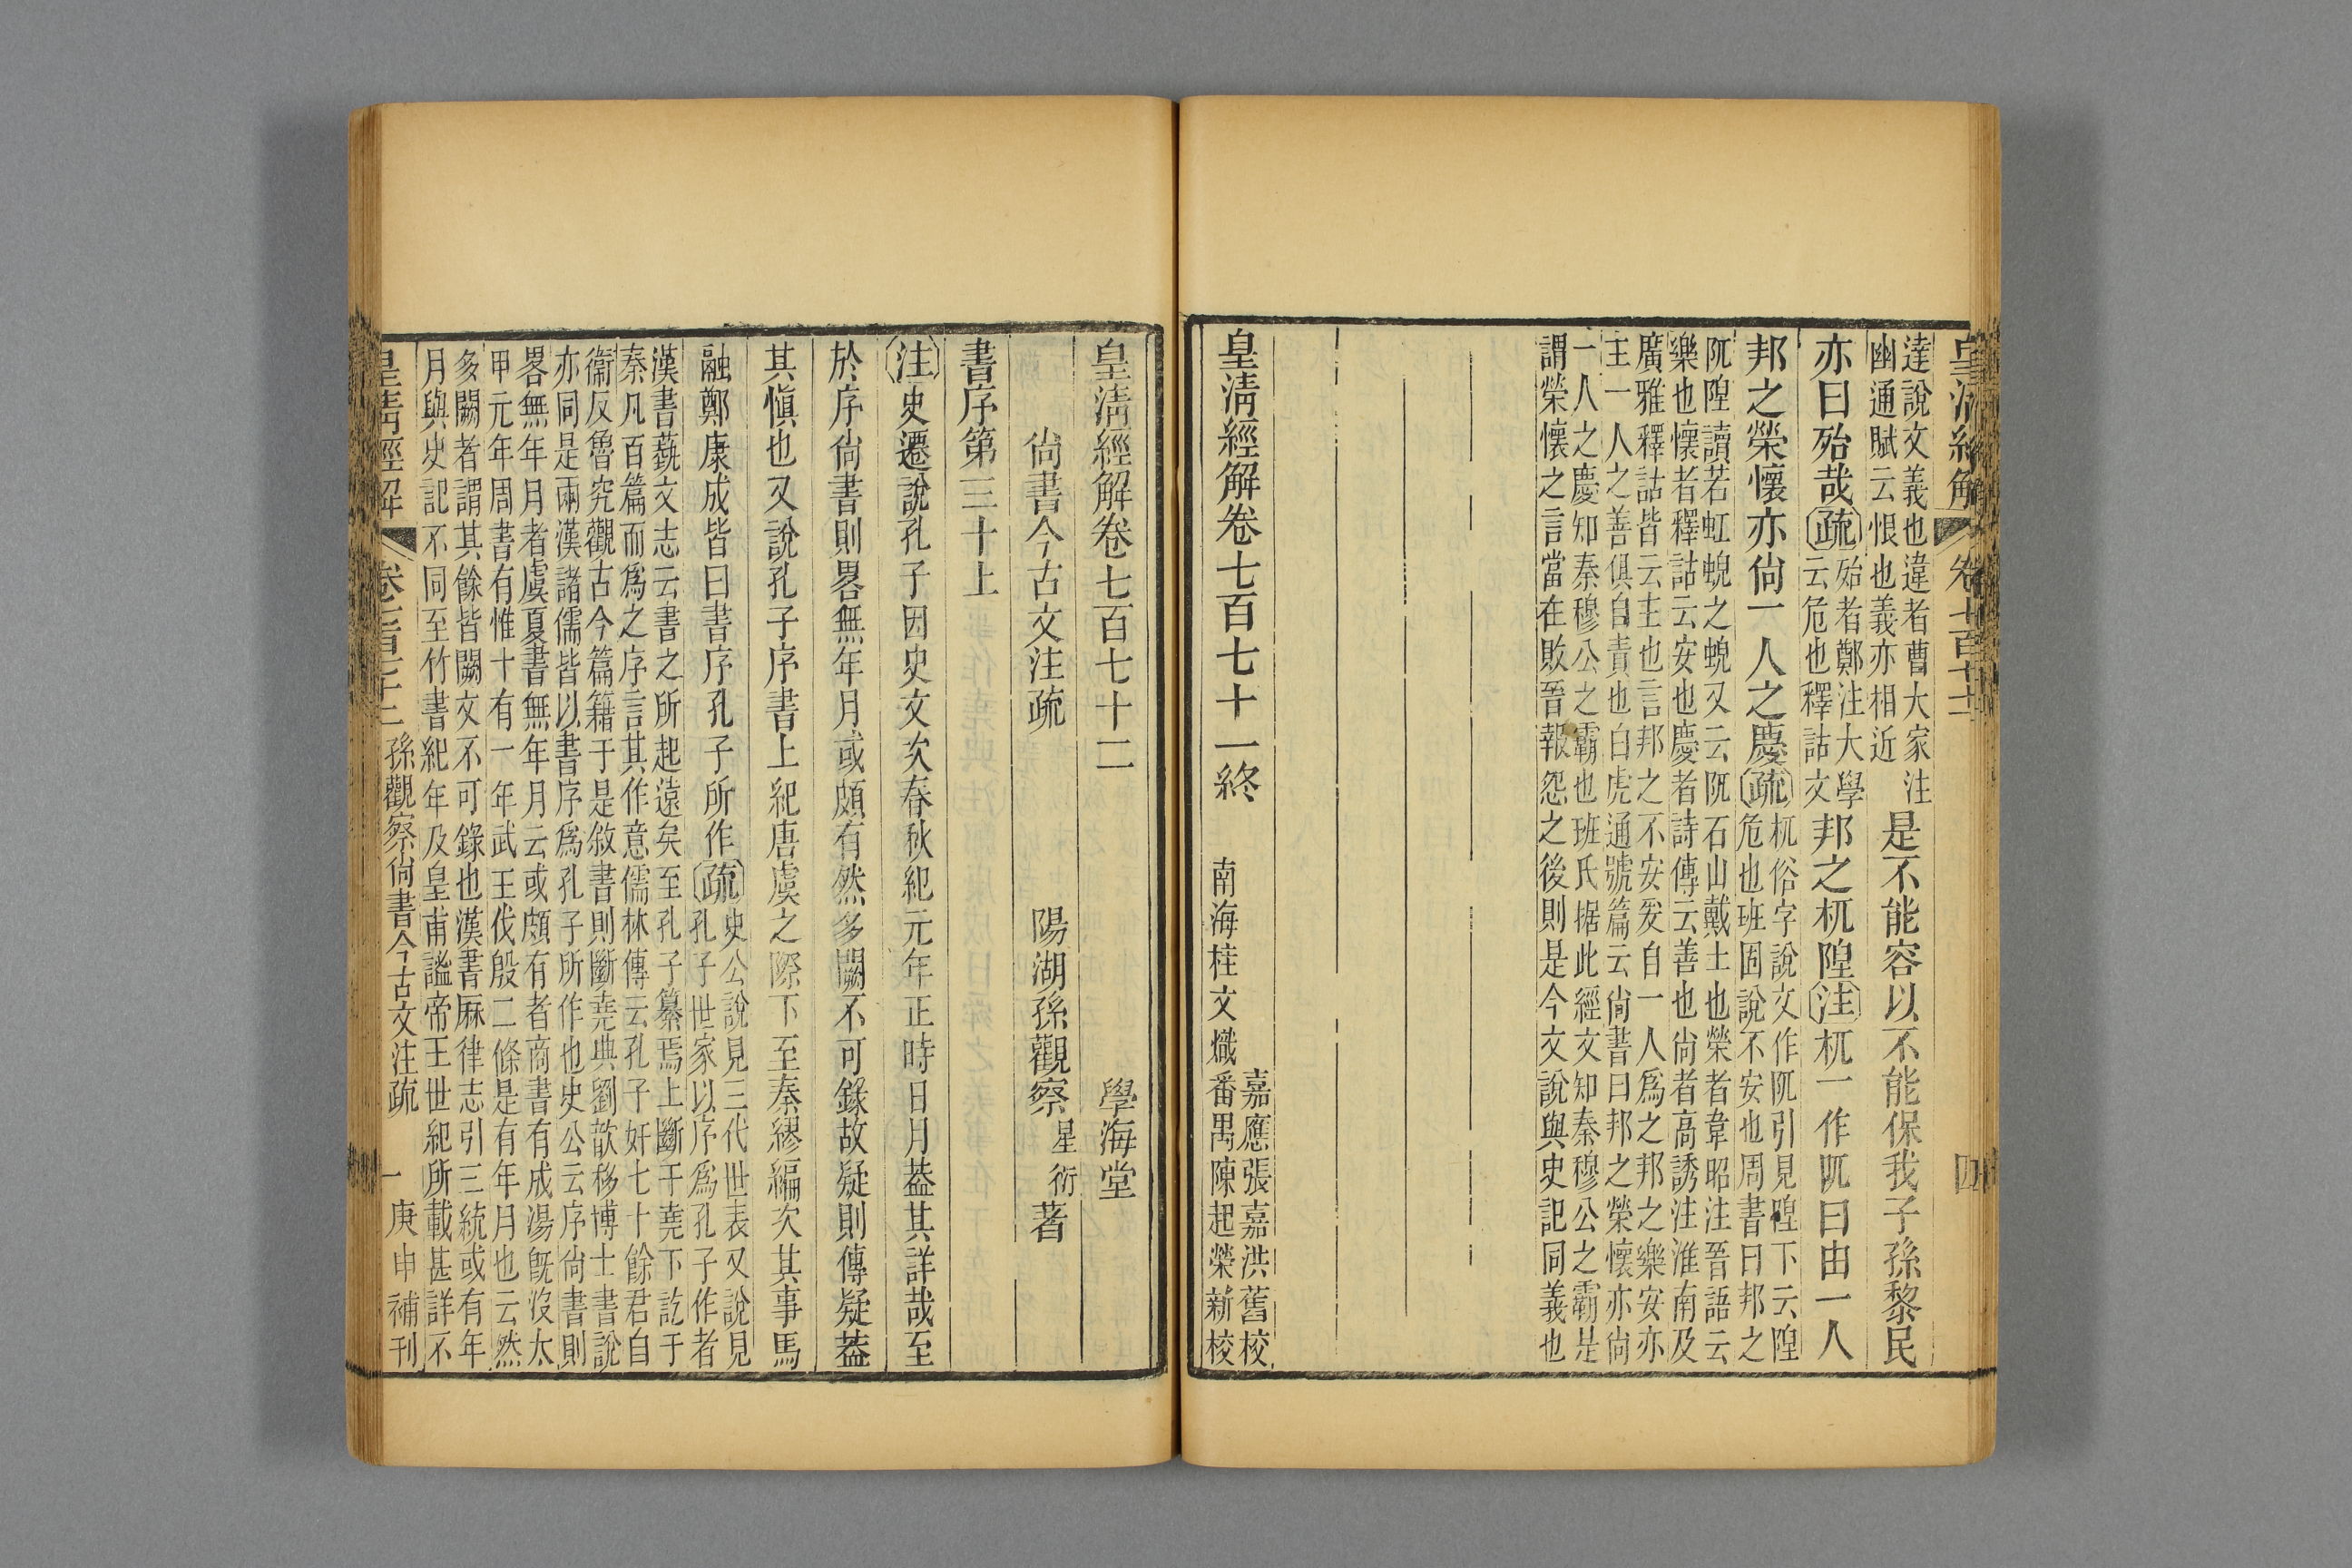 皇清經解 卷七百七十一 四
達說文義也違者曹大家注
幽通賦云恨也義亦相近
是不能容以不能保我子孫黎民
亦曰殆哉疏
殆者鄭注大學
云危也釋詁文
邦之杌隉注杌一作阢曰由一人
邦之榮懷亦尙一人之慶疏
杌俗字說文作阢引見隉下云隉
危也班固說不安也周書曰邦之
阢隉讀若虹蜺之蜺又云阢石山戴土也榮者韋昭注晉語云
樂也懷者釋詁云安也慶者詩傳云善也尙者高誘注淮南及
廣雅釋詁皆云主也言邦之不安爰自一人爲之邦之樂安亦
主一人之善俱自責也白虎通號篇云尙書曰邦之榮懷亦尙
一人之慶知秦穆公之霸也班氏据此經文知秦穆公之霸是
謂榮懷之言當在敗晉報怨之後則是今文說與史記同義也
皇清經解卷七百七十一終
嘉應張嘉洪舊校
南海桂文熾番禺陳起榮新校
皇清經解卷七百七十二 學海堂
尙書今古文注疏 陽湖孫觀察星衍著
書序第三十上
注史遷說孔子因史文次春秋紀元年正時日月葢其詳哉至
於序尙書則畧無年月或頗有然多闕不可錄故疑則傳疑葢
其愼也又說孔子序書上紀唐虞之際下至秦繆編次其事馬
融鄭康成皆曰書序孔子所作疏
史公說見三代世表又說見
孔子世家以序爲孔子作者
漢書蓺文志云書之所起遠矣至孔子纂焉上斷于堯下訖于
秦凡百篇而爲之序言其作意儒林傳云孔子奸七十餘君自
衞反魯究觀古今篇籍于是敘書則斷堯典劉歆移博士書說
亦同是兩漢諸儒皆以書序爲孔子所作也史公云序尙書則
畧無年月者虞夏書無年月云或頗有者商書有成湯旣沒太
甲元年周書有惟十有一年武王伐殷二條是有年月也云然
多闕者謂其餘皆闕文不可錄也漢書厤律志引三統或有年
月與史記不同至竹書紀年及皇甫謐帝王世紀所載甚詳不
皇清經解 卷七百七十二 孫觀察尙書今古文注疏 一 庚申補刊